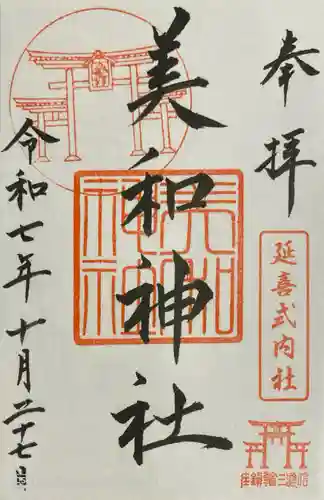 奉拝
延喜式内社
美和神社
令和七年十月二十七日